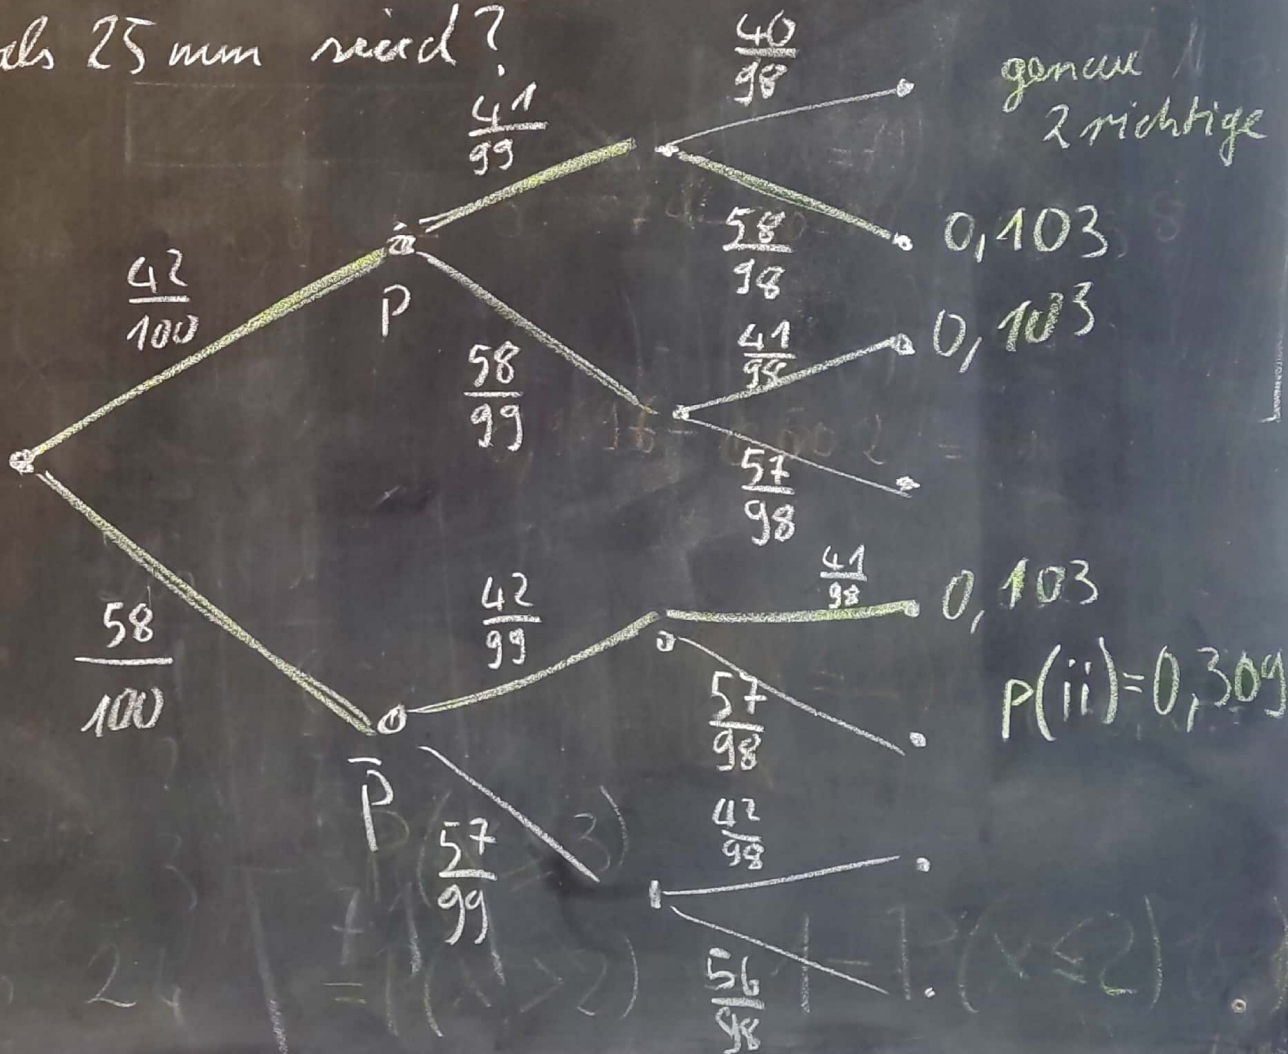 als 25 mm sind?
40
98
genau
2 richtige
41
99
58
98
0,103
42
100
P
41
98
0,103
58
99
57
98
42
99
41
98
0,103
58
100
57
98
p(ii)=0,309
P̄
57
99
42
98
56
98
= P(x>2)
1-P(x≤2)